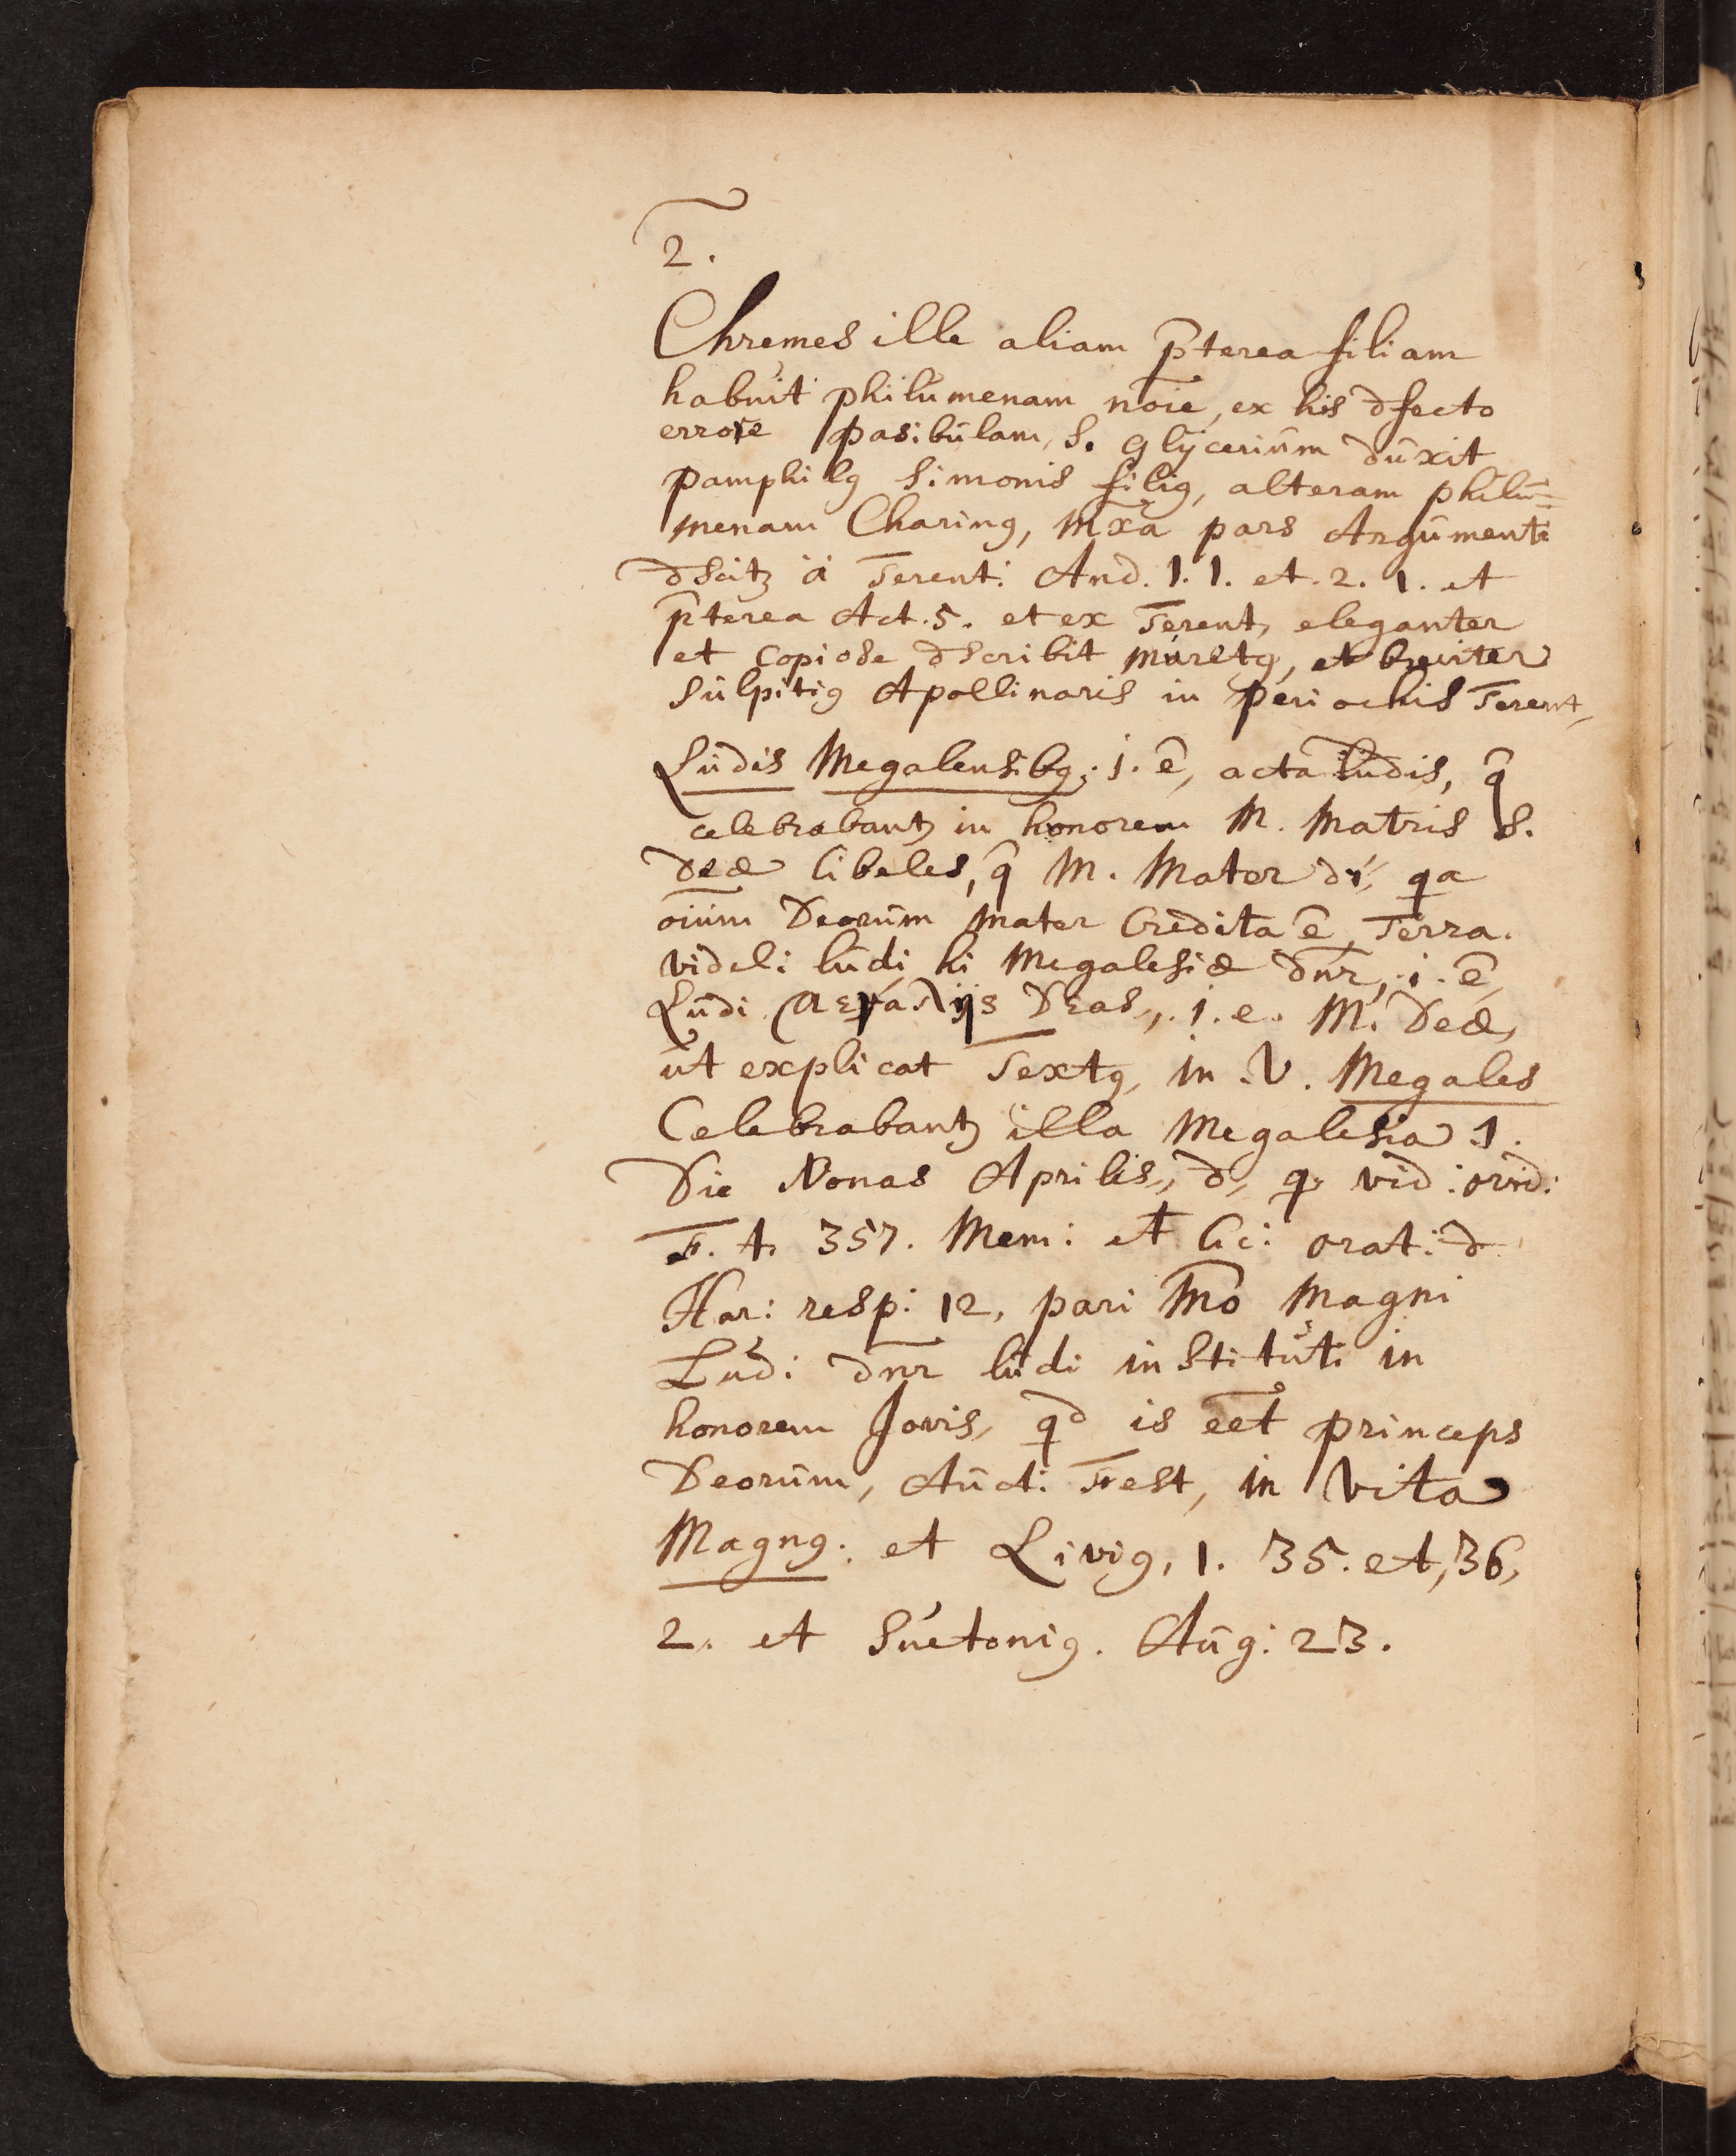 2.
Chremes ille aliam p̄terea filiam
habuit philumenam nōie, ex his dfecto
errore pasibulam, s. glycerium duxit
pamphilꝯ Simonis filiꝯ, alteram philu=
menam Charinꝯ, mxa pars Argumenti
à Terent: And. 1. 1. et. 2. 1. et
p̄terea Act. 5. et ex Terent, eleganter
et copiose dscribit muretꝯ, et breviter
Sulpitiꝯ Apollinaris in periochis Terent,
Ludis Megalensibꝯ. i. ē, acta ludis, q̄
celebrabantꝫ in honorem M. Matris s.
Deæ Cibeles, q̄ M. Mater di, qa
oium Deorum mater credita ē, Terra.
videli: ludi hi Megalesiæ dn̄r, .i. ē,
Ludi Deas, .i. e. M. Deæ,
ut explicat Sextꝯ, in .V. Megales
Celebrabantꝫ illa Megalesia 1.
Die Nonas Aprilis, d, q. vid: ovid:
F. 4. 357. Mem: et Cic: orat: d
Har: resp: 12, pari mō Magni
Lud: dn̄r ludi instituti in
honorem Jovis, qd is eet princeps
Deorum, Auct: Fest, in Vita
Magnꝯ. et Liviꝯ, 1. 35. et, 36,
2. et Suetoniꝯ. Aug: 23.